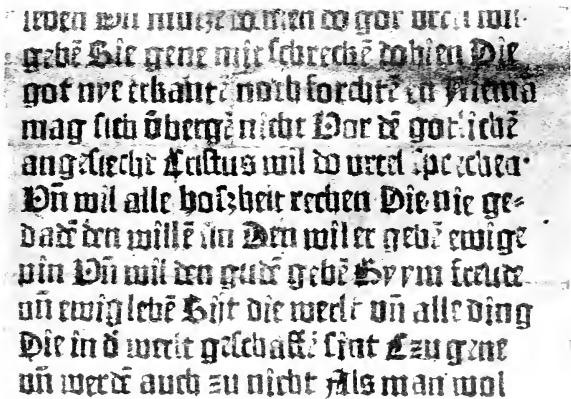 leben vnd musze komen do got urteil wil
gebē Sie gene mit schreckē dohien Die
got nye erkantē noch forchtē en Niema
mag sich v̄bergē nicht Vor dē gotlichē
angesiecht Cristus wil do vrteil sprechen·
Vn̄ wil alle boszheit rechen Die nie ge⸗
dadē den willē sin Den wil er gebē ewige
pin Vn̄ wil den gudē gebē By ym freude
vn̄ ewig lebē Sijt die werlt vn̄ alle ding
Die in d̄ werlt geschaffē sint Czu gene
vn̄ werdē auch zu nicht Als man wol